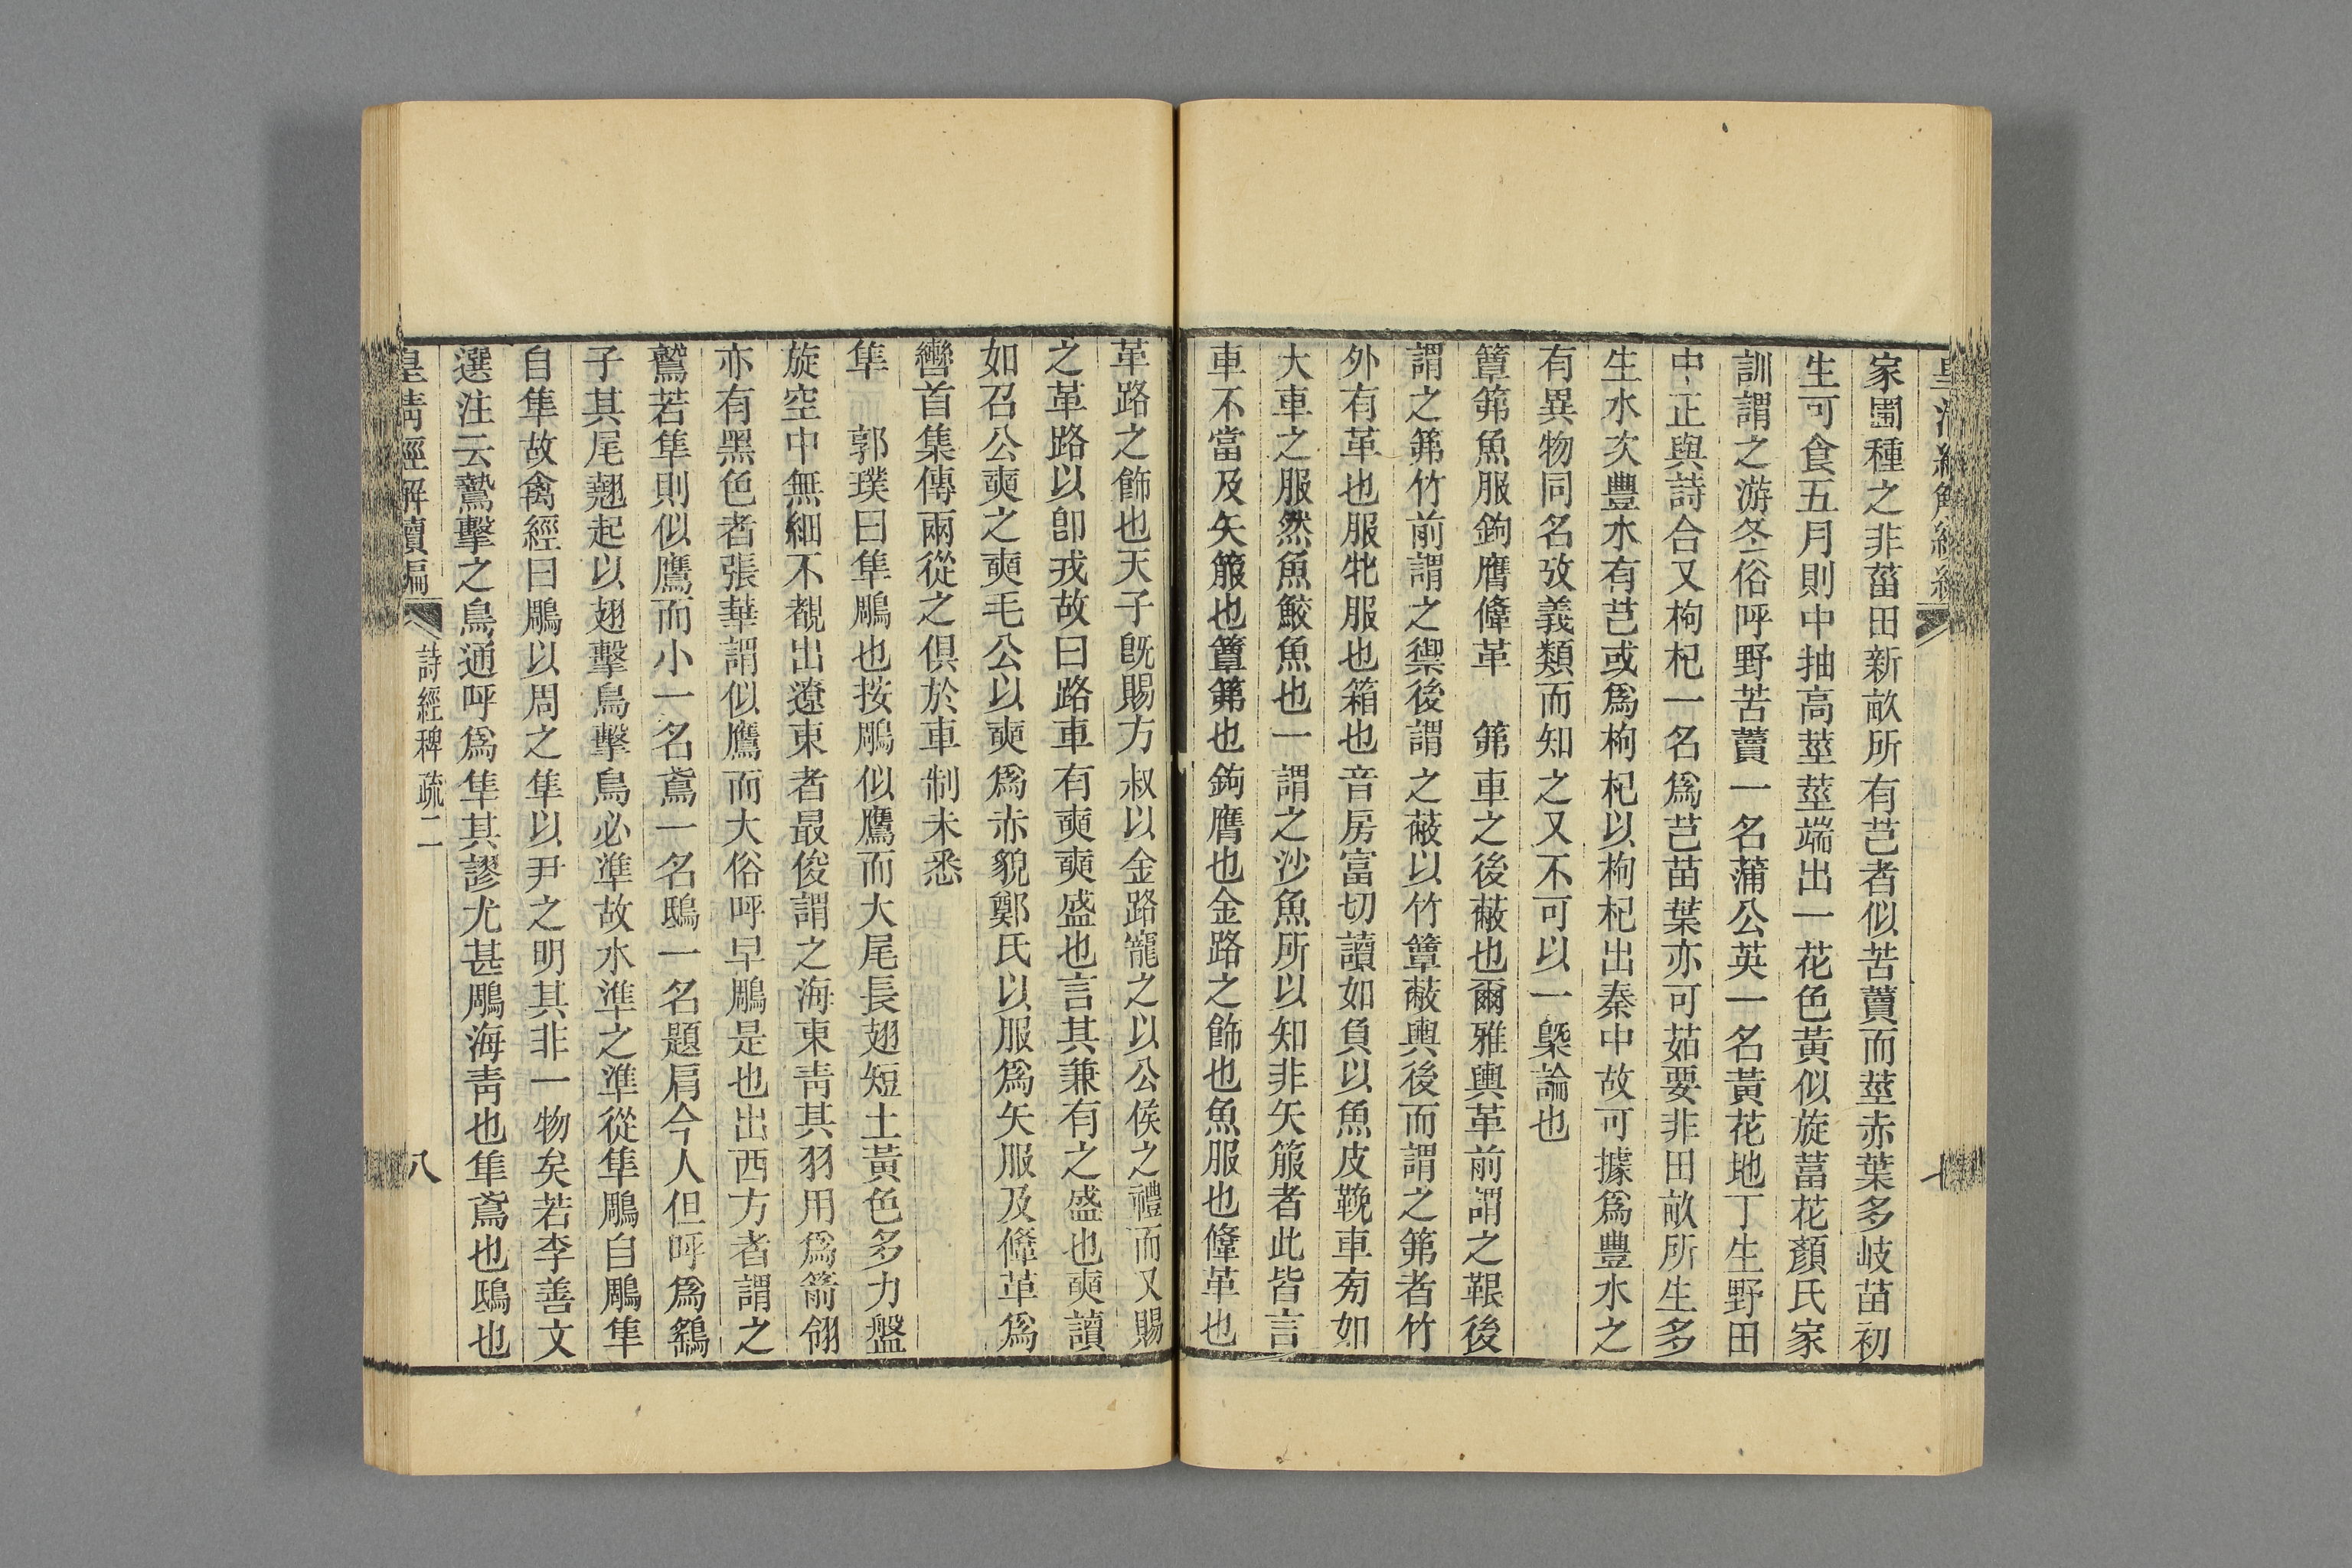 家圃種之非菑田新畝所有芑者似苦蕒而莖赤葉多岐苗初
生可食五月則中抽高莖莖端出一花色黃似旋葍花顏氏家
訓謂之游冬俗呼野苦蕒一名蒲公英一名黃花地丁生野田
中正與詩合又枸杞一名爲芑苗葉亦可茹要非田畝所生多
生水次豐水有芑或爲枸杞以枸杞出秦中故可據爲豐水之
有異物同名攷義類而知之又不可以一槩論也
簟笰魚服鉤膺鞗革　笰車之後蔽也爾雅輿革前謂之鞎後
謂之笰竹前謂之禦後謂之蔽以竹簟蔽輿後而謂之笰者竹
外有革也服牝服也箱也音房富切讀如負以魚皮鞔車旁如
大車之服然魚鮫魚也一謂之沙魚所以知非矢箙者此皆言
車不當及矢箙也簟笰也鉤膺也金路之飾也魚服也鞗革也
革路之飾也天子旣賜方叔以金路寵之以公侯之禮而又賜
之革路以卽戎故曰路車有奭奭盛也言其兼有之盛也奭讀
如召公奭之奭毛公以奭爲赤貌鄭氏以服爲矢服及鞗革爲
轡首集傳兩從之俱於車制未悉
隼　郭璞曰隼鵰也按鵰似鷹而大尾長翅短土黃色多力盤
旋空中無細不覩出遼東者最俊謂之海東靑其羽用爲箭翎
亦有黑色者張華謂似鷹而大俗呼早鵰是也出西方者謂之
鷲若隼則似鷹而小一名鳶一名鴟一名題肩今人但呼爲鷂
子其尾翹起以翅擊鳥擊鳥必準故水準之準從隼鵰自鵰隼
自隼故禽經曰鵰以周之隼以尹之明其非一物矣若李善文
選注云鷙擊之鳥通呼爲隼其謬尤甚鵰海靑也隼鳶也鴟也
皇淸經解續編　詩經稗疏二　八